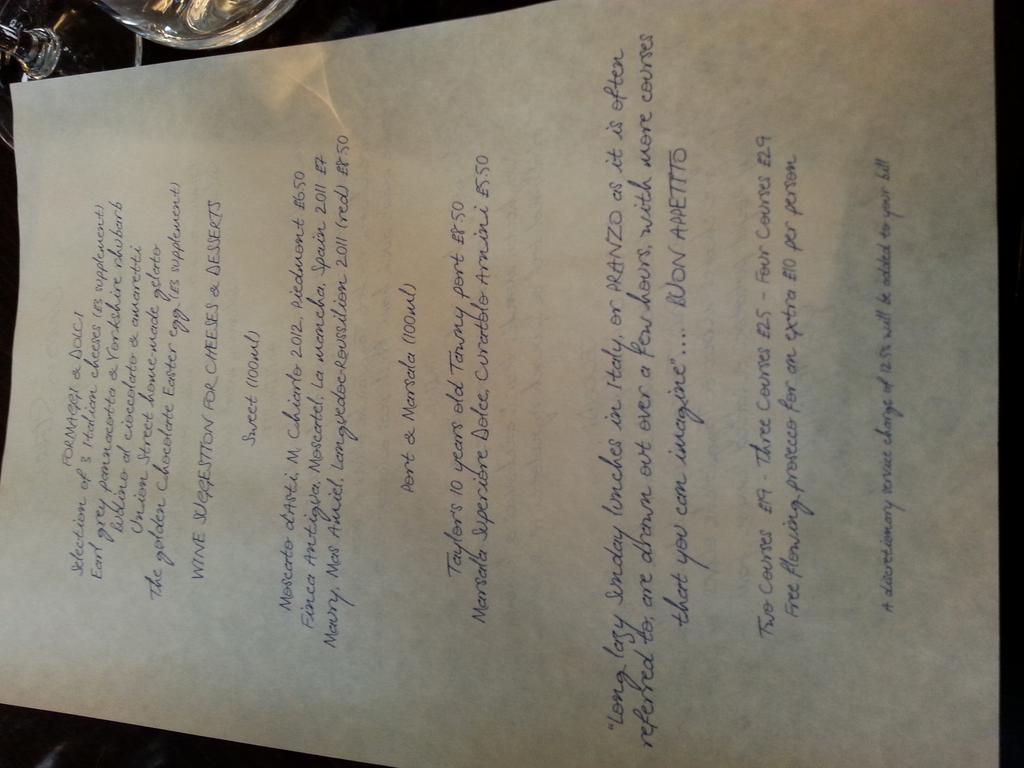 FORMAGGI & DOLCI
Selection of 3 Italian cheeses (£5 supplement)
Earl grey pannacotta & Yorkshire rhubarb
Bublino al cioccolato & amaretti
Union Street homemade gelato
The golden Chocolate Easter egg (£5 supplement)
WINE SUGGESTION FOR CHEESES & DESSERTS
Sweet (100ml)
Moscato d'Asti, M. Chiarlo 2012. Piedmont £6.50
Finca Antigua, Moscatel, La mancha, Spain 2011 £7
Maury, Mas Amiel, Languedoc-Roussillon 2011 (red) £8.50
Port & Marsala (100ml)
Taylors 10 years old Tawny port £8.50
Marsala Superiore Dolce, Curatolo Arnini £5.50
"Long lazy Sunday lunches in Italy, or PRANZO as it is often
referred to, are drawn out over a few hours, with more courses
that you can imagine".... BUON APPETITO
Two Courses £19 - Three Courses £25 - Four Courses £29
Free flowing prosecco for an extra £10 per person
A discretionary service charge of 12.5% will be added to your bill